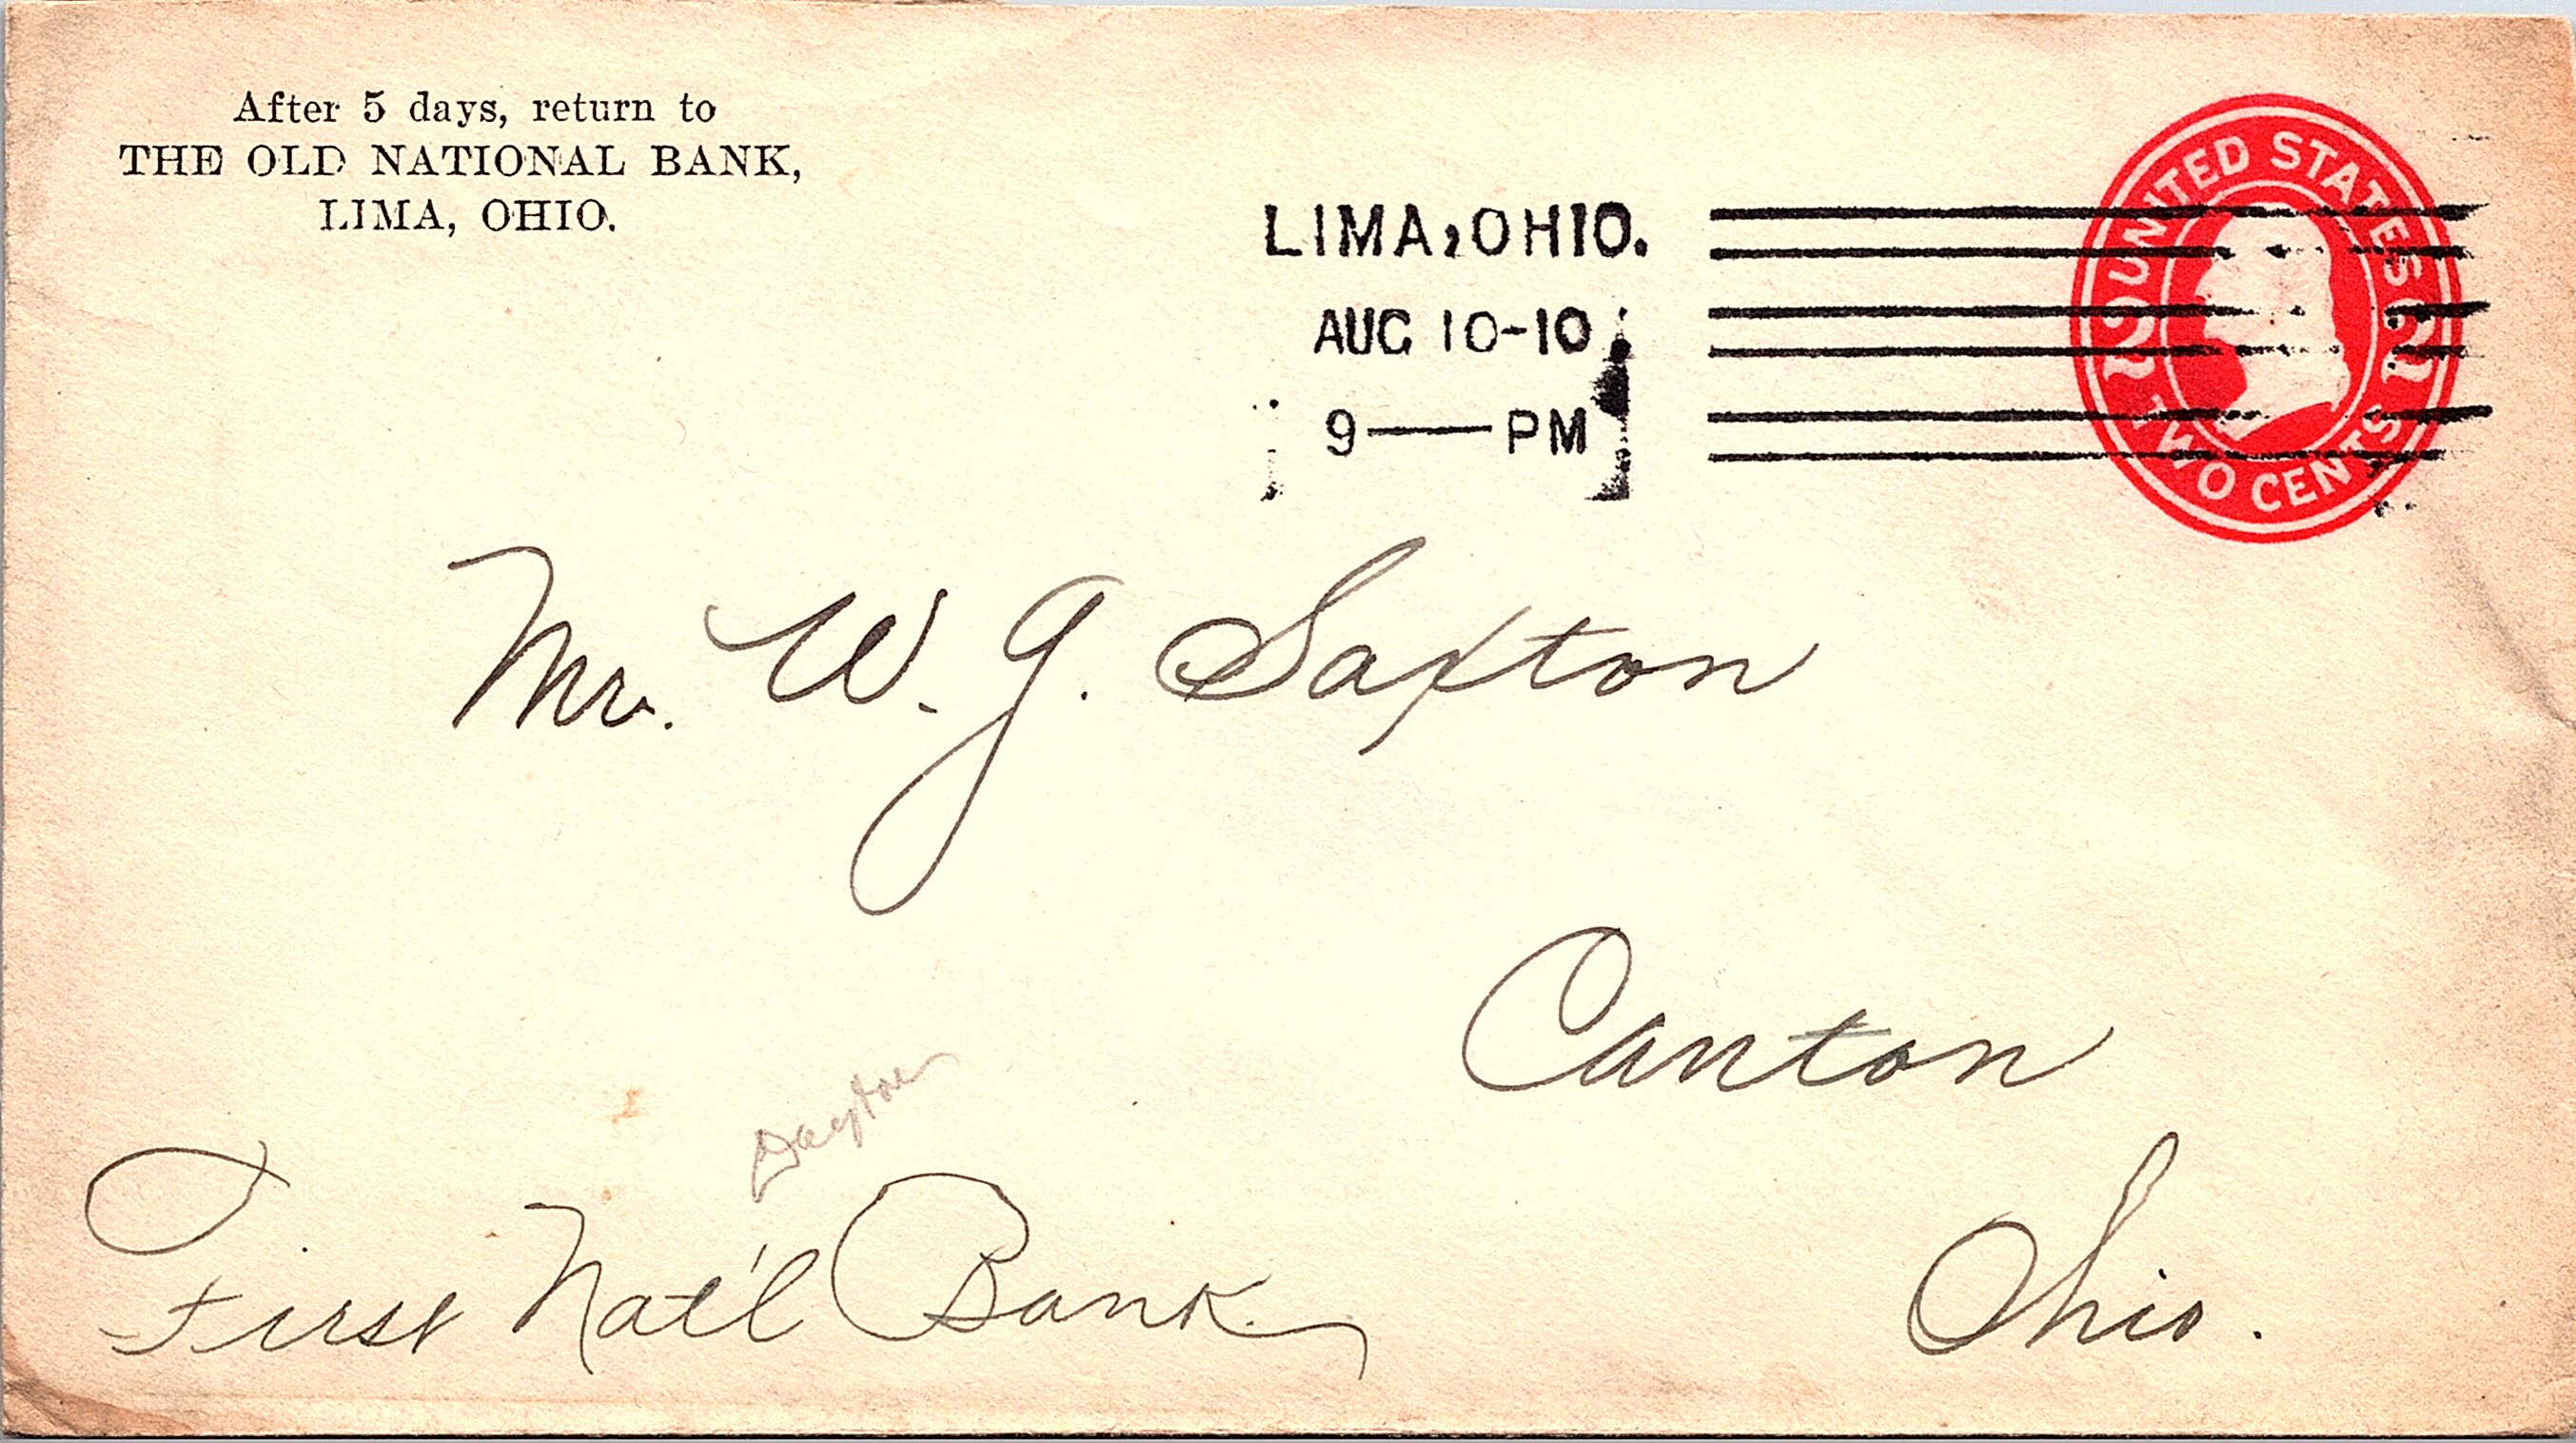 After 5 days, return to
THE OLD NATIONAL BANK,
LIMA, OHIO.
LIMA, OHIO.
AUG 10-10
9 — PM
UNITED STATES
2 2
TWO CENTS
Mr. W. G. Saxton
Canton
Ohio.
Dayton
First Nat'l Bank